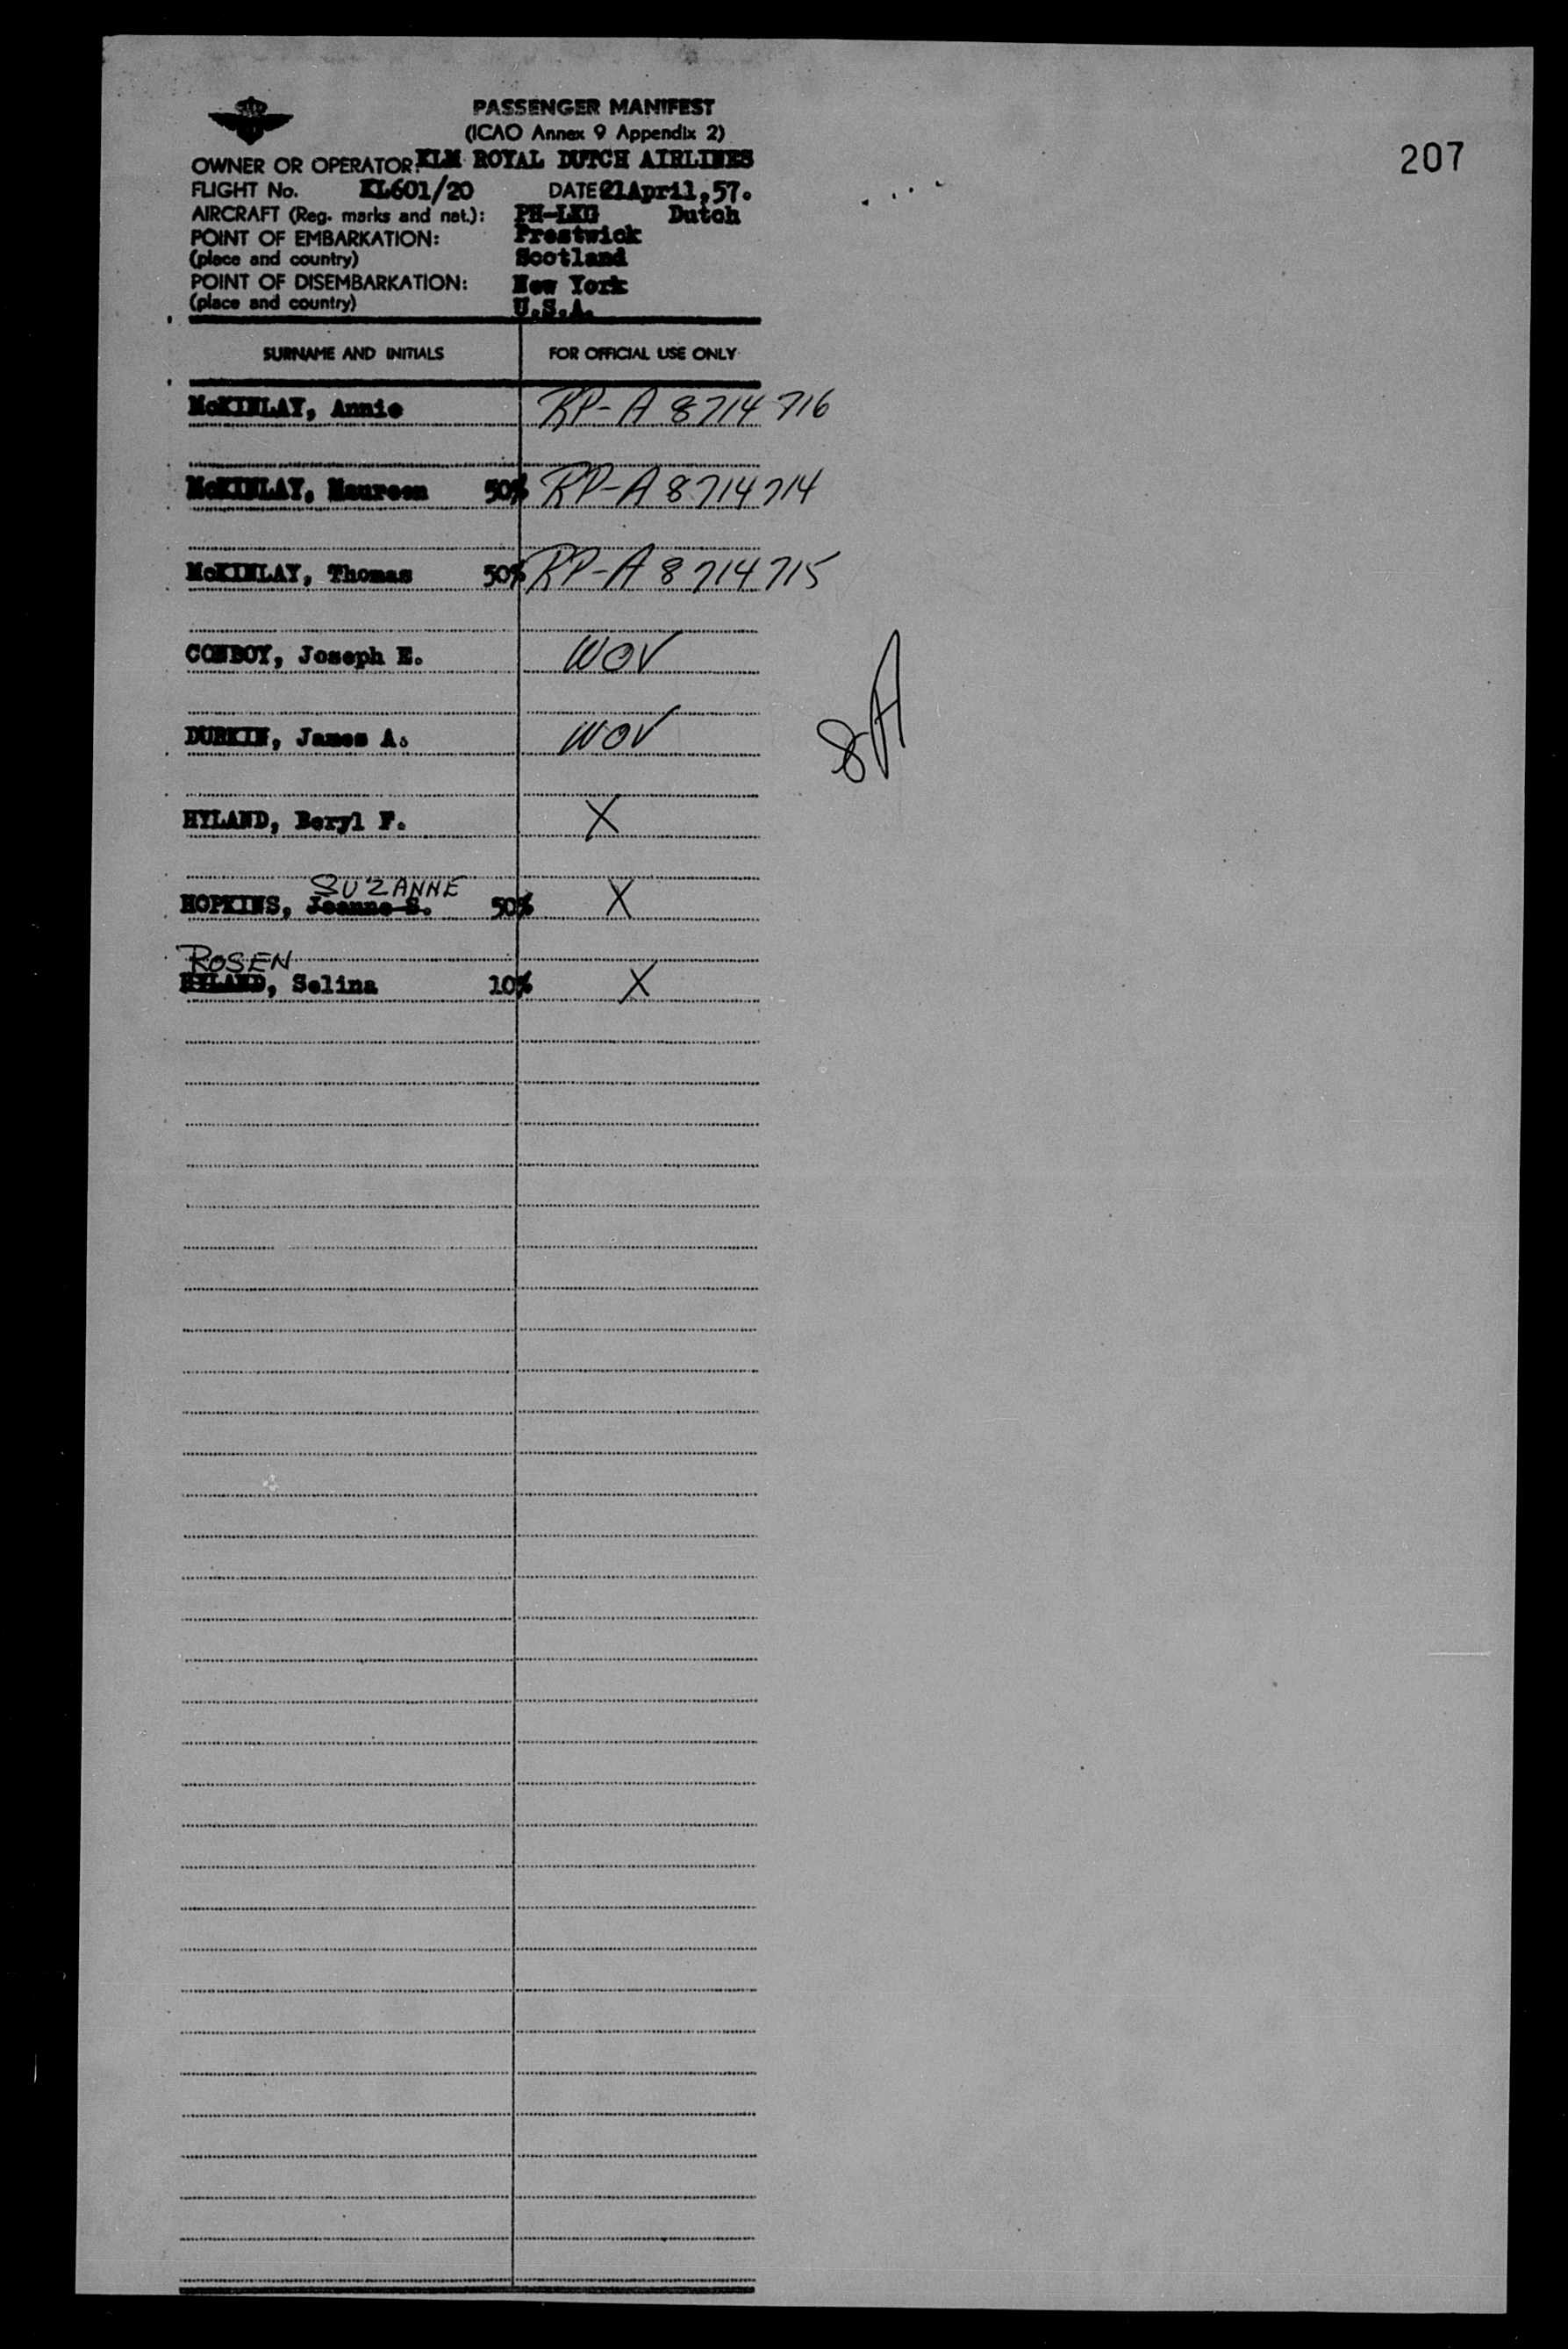 207
PASSENGER MANIFEST
(ICAO Annex 9 Appendix 2)
OWNER OR OPERATOR: KLM ROYAL DUTCH AIRLINES
FLIGHT No. KL601/20 DATE 21April,57.
AIRCRAFT (Reg. marks and nat.): Dutch
POINT OF EMBARKATION: Prestwick
(place and country) Scotland
POINT OF DISEMBARKATION: New York
(place and country) U.S.A.
SURNAME AND INITIALS FOR OFFICIAL USE ONLY
McKINLAY, Annie RP-A 8714 716
McKINLAY, Maureen 50% RP-A 8714714
McKINLAY, Thomas 50% RP-A 8714715
CONBOY, Joseph E. WOV
DURKIN, James A. WOV
8A
HYLAND, Beryl F. X
SUZANNE
HOPKINS, Jeanne S. 50% X
ROSEN
HYLAND, Selina 10% X